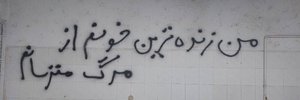 من زنده ترین خونم از
مرگ متزسانم